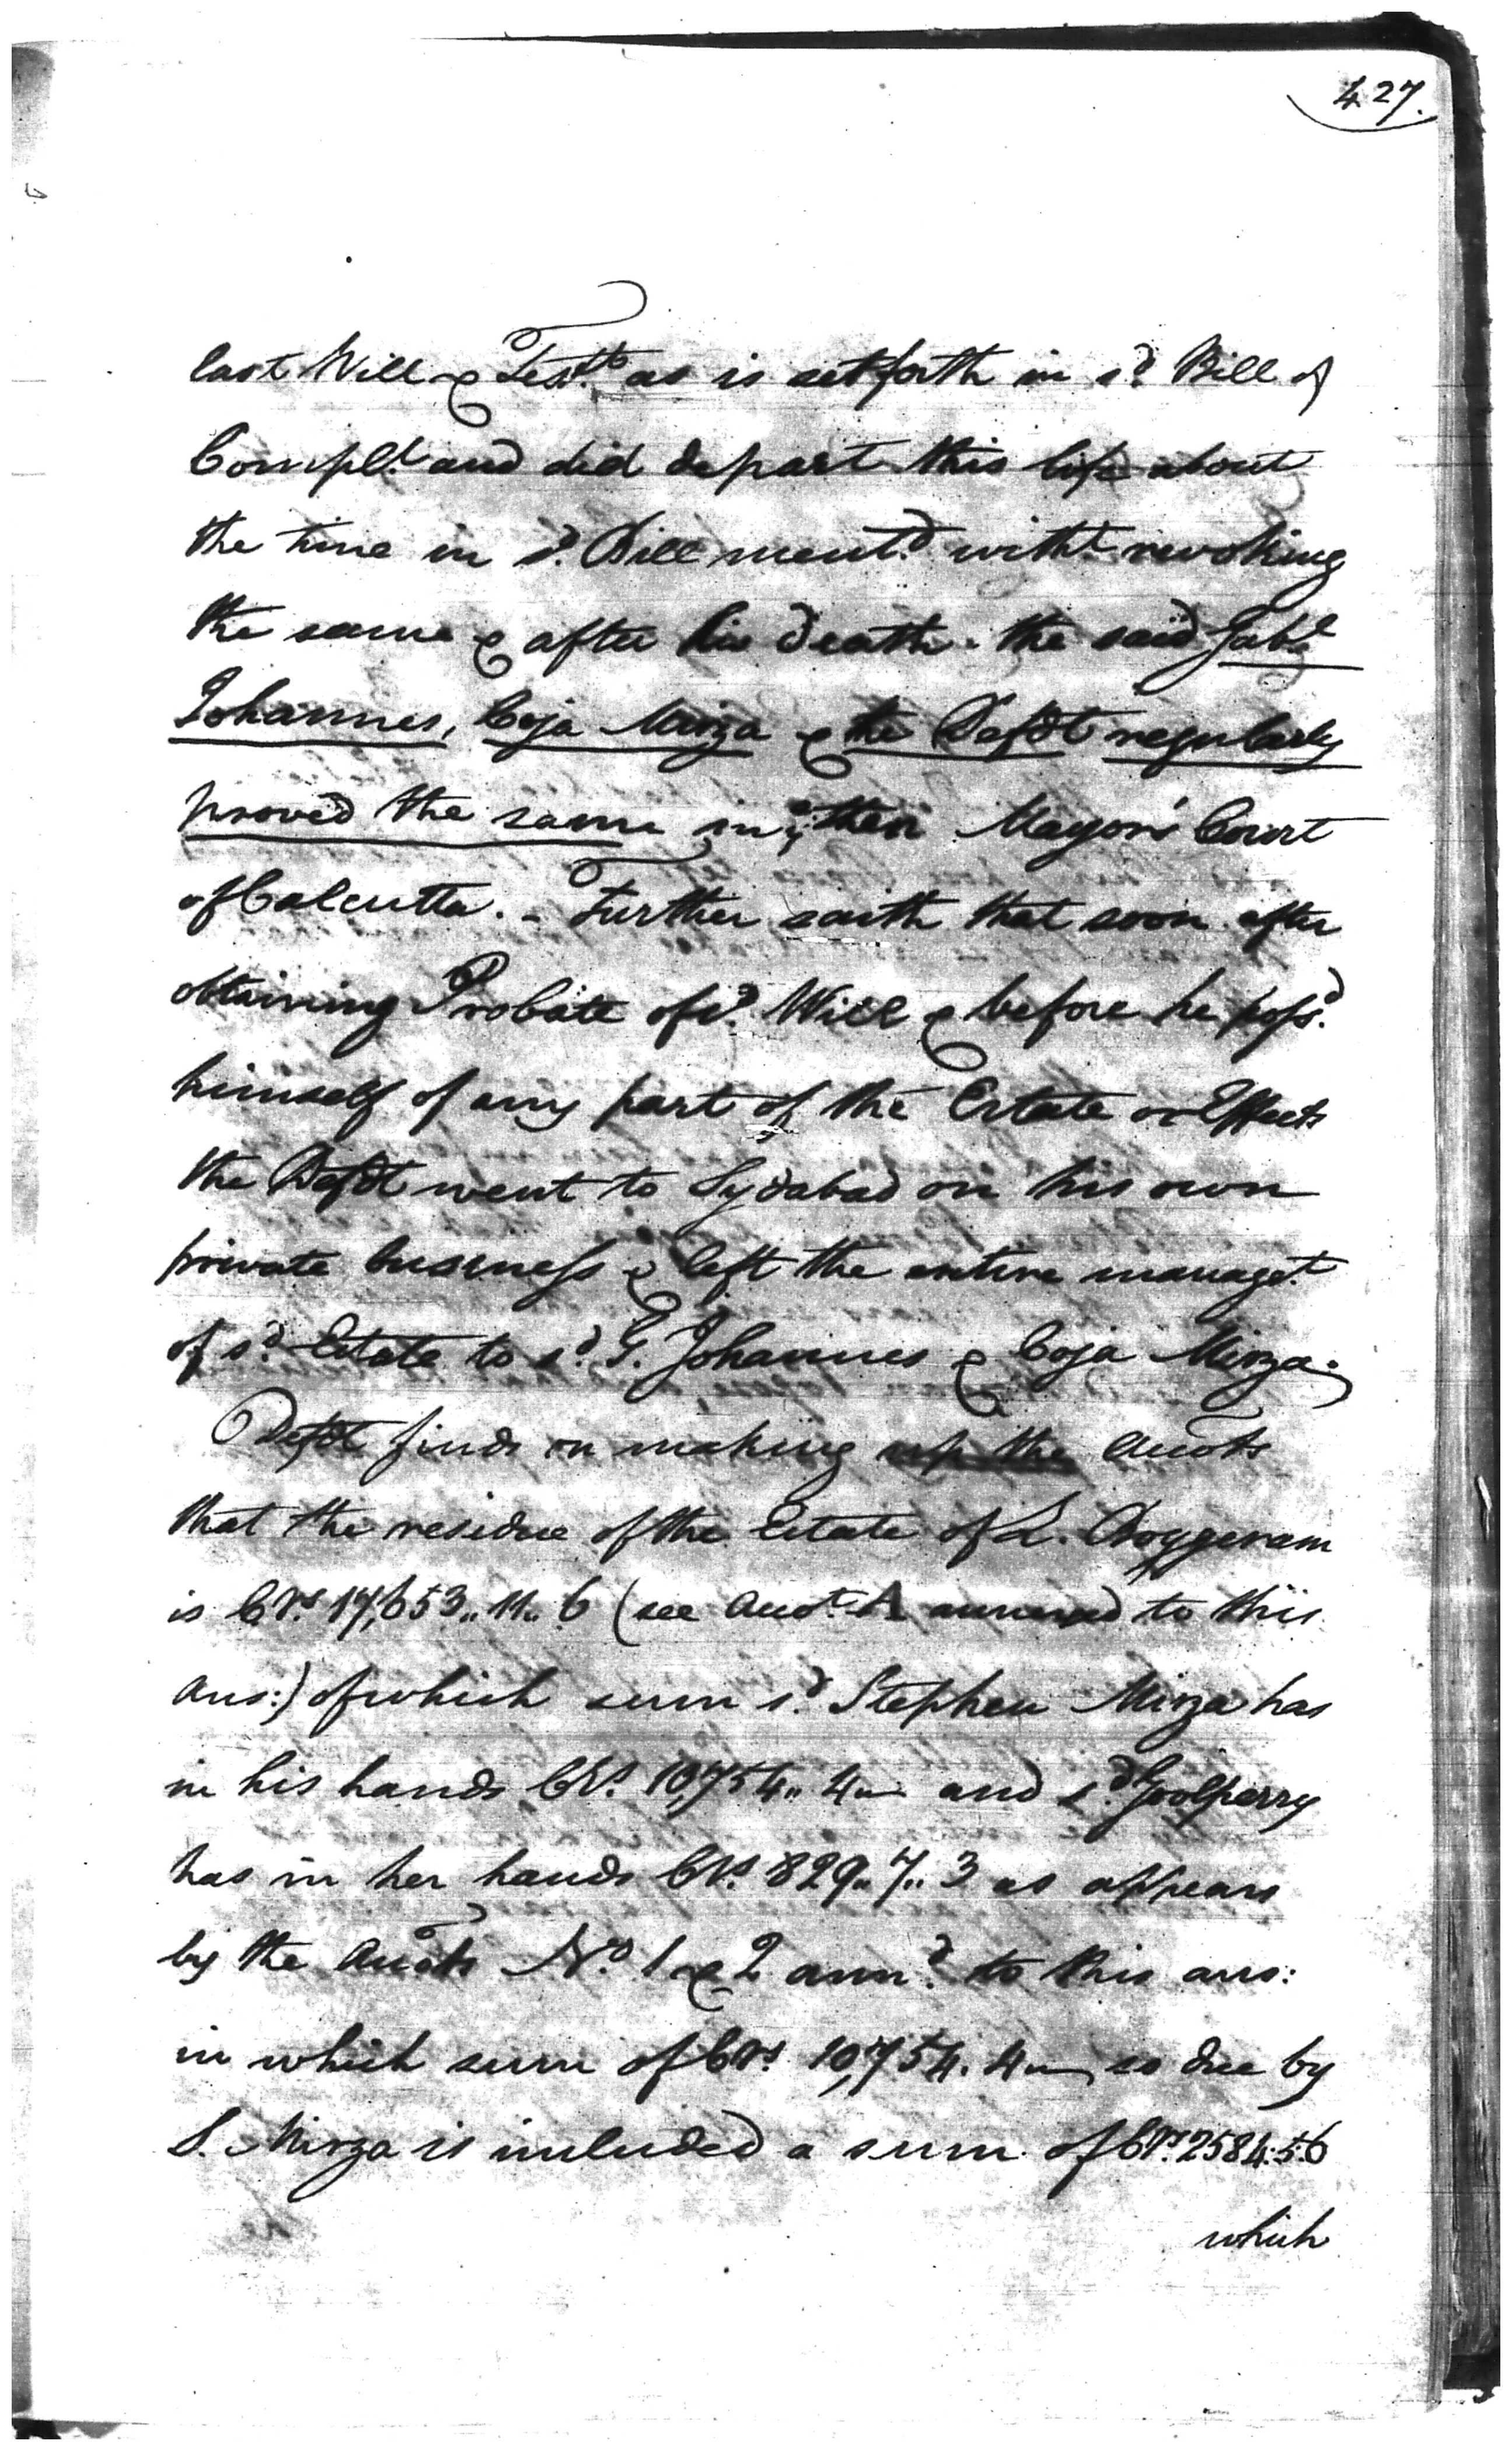 427.
last Will & Testt. as is set forth in sd. Bill of
Complt. and did depart this life about
the time in sd. Bill mentd. witht. revoking
the same & after his death the said Gabl.
Johannes, Coja Mirza & the Defdt regularly
proved the same in ye. then Mayor's Court
of Calcutta. - Further saith that soon after
obtaining Probate of sd. Will & before he possd.
himself of any part of the Estate or Effects
the Defdt went to Sydabad on his own
private business & left the entire managet.
of sd. Estate to sd. G. Johannes & Coja Mirza.
Defdt finds on making up the Accots
that the residue of the Estate of L.
is CRs. 17,653,,11,,6 (see Accot. A annexed to this
ans:) of which sum sd. Stephen Mirza has
in his hands CRs. 10,754,,4,,- and sd. Goolperry
has in her hands CRs. 829,,7,,3 as appears
by the Accots No. 1 & 2 annd. to this ans:
in which sum of CRs. 10,754.4,,- so due by
S. Mirza is included a sum of CRs. 2584:5:6
which